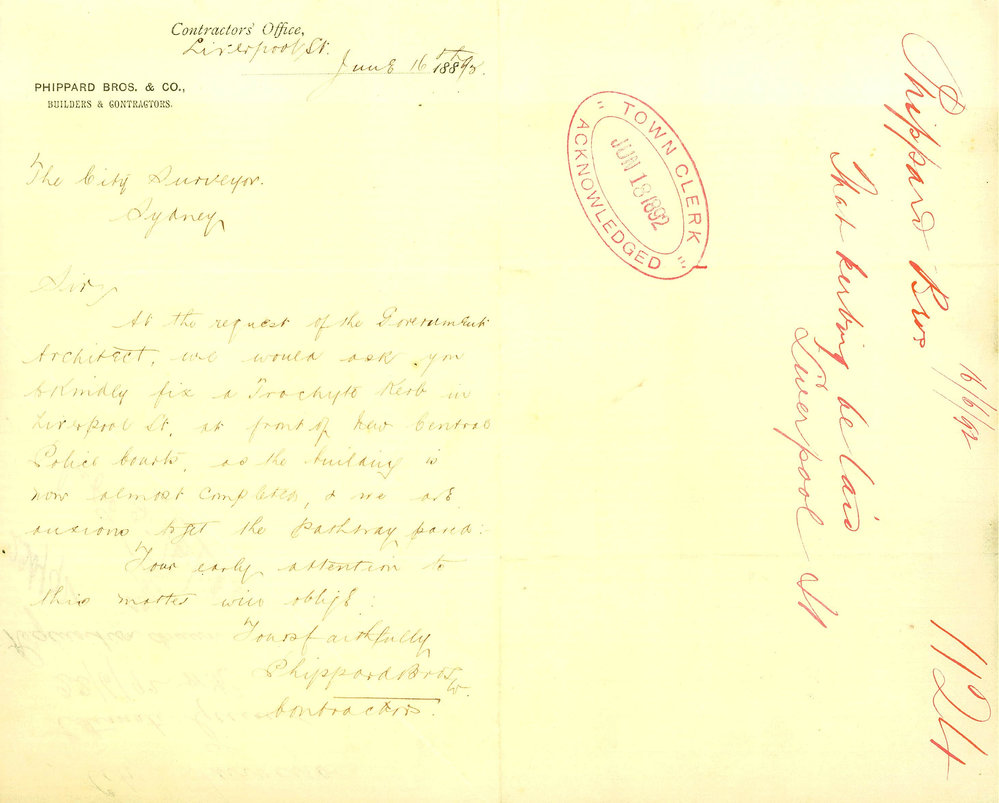 Contractors' Office,
Liverpool St.
June 16th 1892.
PHIPPARD BROS. & CO.,
BUILDERS & CONTRACTORS.
The City Surveyor.
Sydney
Sir,
At the request of the Government
Architect, we would ask you
to kindly fix a Trachyte Kerb in
Liverpool St, at front of New Central
Police Courts, as the building is
now almost completed, & we are
anxious to get the Pathway paved.
Your early attention to
this matter will oblige.
Yours faithfully
Phippard Bros
Contractors.
"TOWN CLERK"
JUN 18 1892
ACKNOWLEDGED
Phippard Bros
16/6/92
That kerbing be laid
Liverpool St
1124